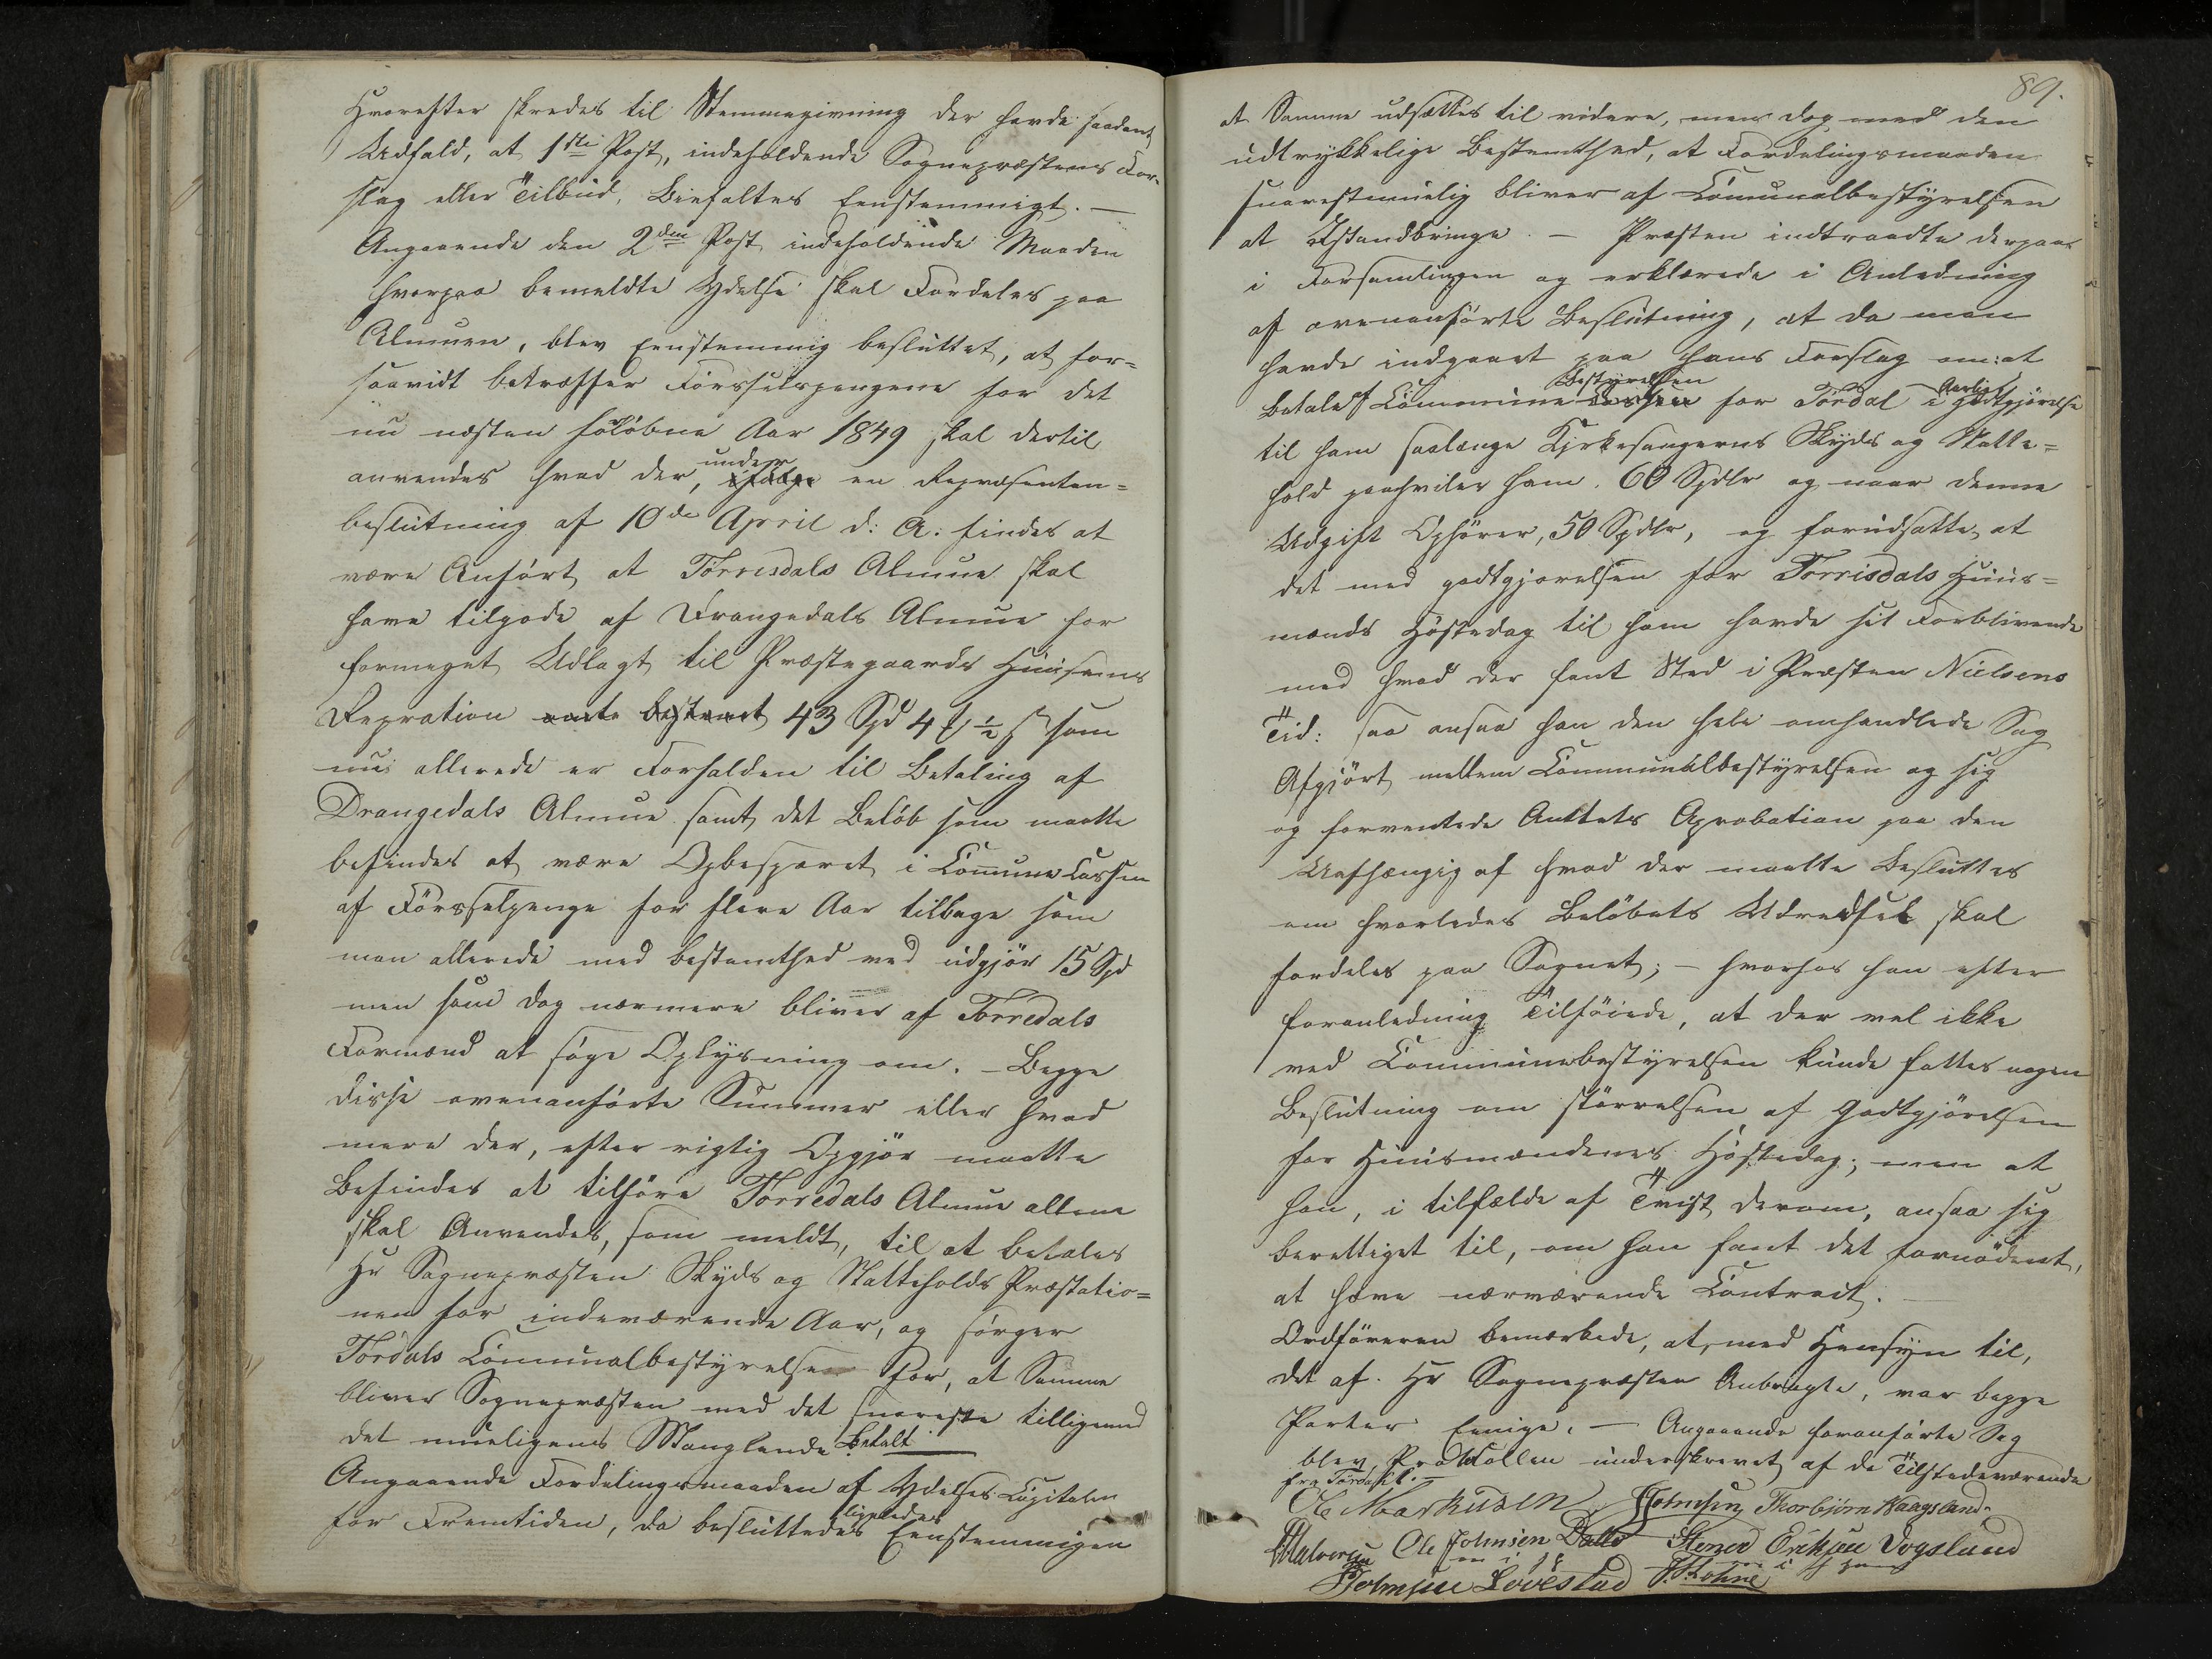 Hvorefter skredes til Stemmegivning der havde saadant
Udfald, at 1ste Post, indeholdende Sognepræstens For-
slag eller Tilbud, Biefaltes Eenstemmigt. —
Angaaende den 2den Post indeholdende Maaden
hvorpaa bemeldte Ydelse skal Fordeles paa
Almuen, blev Eenstemmig besluttet, at for=
saavidt betræffer Förselspengene for det
nu næsten forløbne Aar 1849 skal dertil
anvendes hvad der, under en Repræsentan=
beslutning af 10de April d: A: findes at
være Anført, at Törrisdals Almue skal
have tilgode af Drangedals Almue for
formeget Udlagt til Præstegaards Huusenes
Repration 43 Spd 4 ½ som
nu allerede er Forfalden til Betaling af
Drangedals Almue samt det Beløb som maatte
befindes at være Opbesparet i Commune Cassen
af Förselpenge for flere Aar tilbage som
man allerede med bestemthed ved udgjör 15 Spd
men som dog nærmere bliver af Törredals
Formænd at søge Oplysning om. — Begge
disse ovenanførte Summer eller hvad
mere der, efter rigtig Opgjör maatte
Befindes at tilhøre Törredals Almue allene
skal Anvendes, som meldt, til at betales
Hr Sognepræsten Skyds og Natteholds Præstatio=
nen for indeværende Aar, og sørger
Tördals Communalbestyrelse for, at Samme
bliver Sognepræsten med det snareste tilligemed
det mueligens Manglende Betalt.
Angaaende Fordelingsmaaden af Ydelses Capitalen
for Fremtiden, da besluttedes ligeledes Eenstemmigen
89.
at Samme udsættes til videre, men dog med den
udtrykkelige Bestemthed, at Fordelingsmaaden
snarestmuelig bliver af Communalbestyrelsen
at Istandbringe. — Præsten indtraadte derpaa
i Forsamlingen og erklærede i Anledning
af ovenanførte Beslutning, at da man
havde indgaaet paa hans Forslag om: at
Bestyrelsen Aarlig
betale af Commune Cassen for Tördal i Godtgjörelse
til ham saalænge Kirkesangerens Skyds og Natte=
hold paahviler ham 60 Spdlr og naar denne
Udgift Ophører, 50 Spdlr, og forudsatte at
det med godtgjorelsen for Törrisdals Huus=
mænds Höstedag til ham havde sit Forblivende
med hvad der fant Sted i Præsten Nielsens
Tid: saa ansaa han den hele omhandlede Sag
Afgjört mellem Communalbestyrelsen og sig
og forventede Amtets Aprobation paa den
Uafhængig af hvad der maatte Besluttes
om hvorledes Beløbets Udredsel skal
fordeles paa Sognet; — hvorhos han efter
foranledning Tilföiede, at der vel ikke
ved Communebestyrelsen kunde fattes nogen
Beslutning om størrelsen af Godtgjörelsen
for Huusmændenes Höstedag; men at
han, i tilfælde af Tvist derom, ansaa sig
berettiget til, om han fant det fornödent,
at hæve nærværende Contract. —
Ordföreren bemærkede, at, med Hensyn til,
det af Hr Sognepræsten Anbragte, var begge
Parter Enige. — Angaaende foranførte Sag
blev Protocollen underskrevet af de Tilstedeværende
fra Tördal
Ole Markusen Johnsen Thorbjörn Waagsland.
Halvorsen Ole Johnsen Dalle Stener Eriksen Vogslund
Johnsen Lovestad